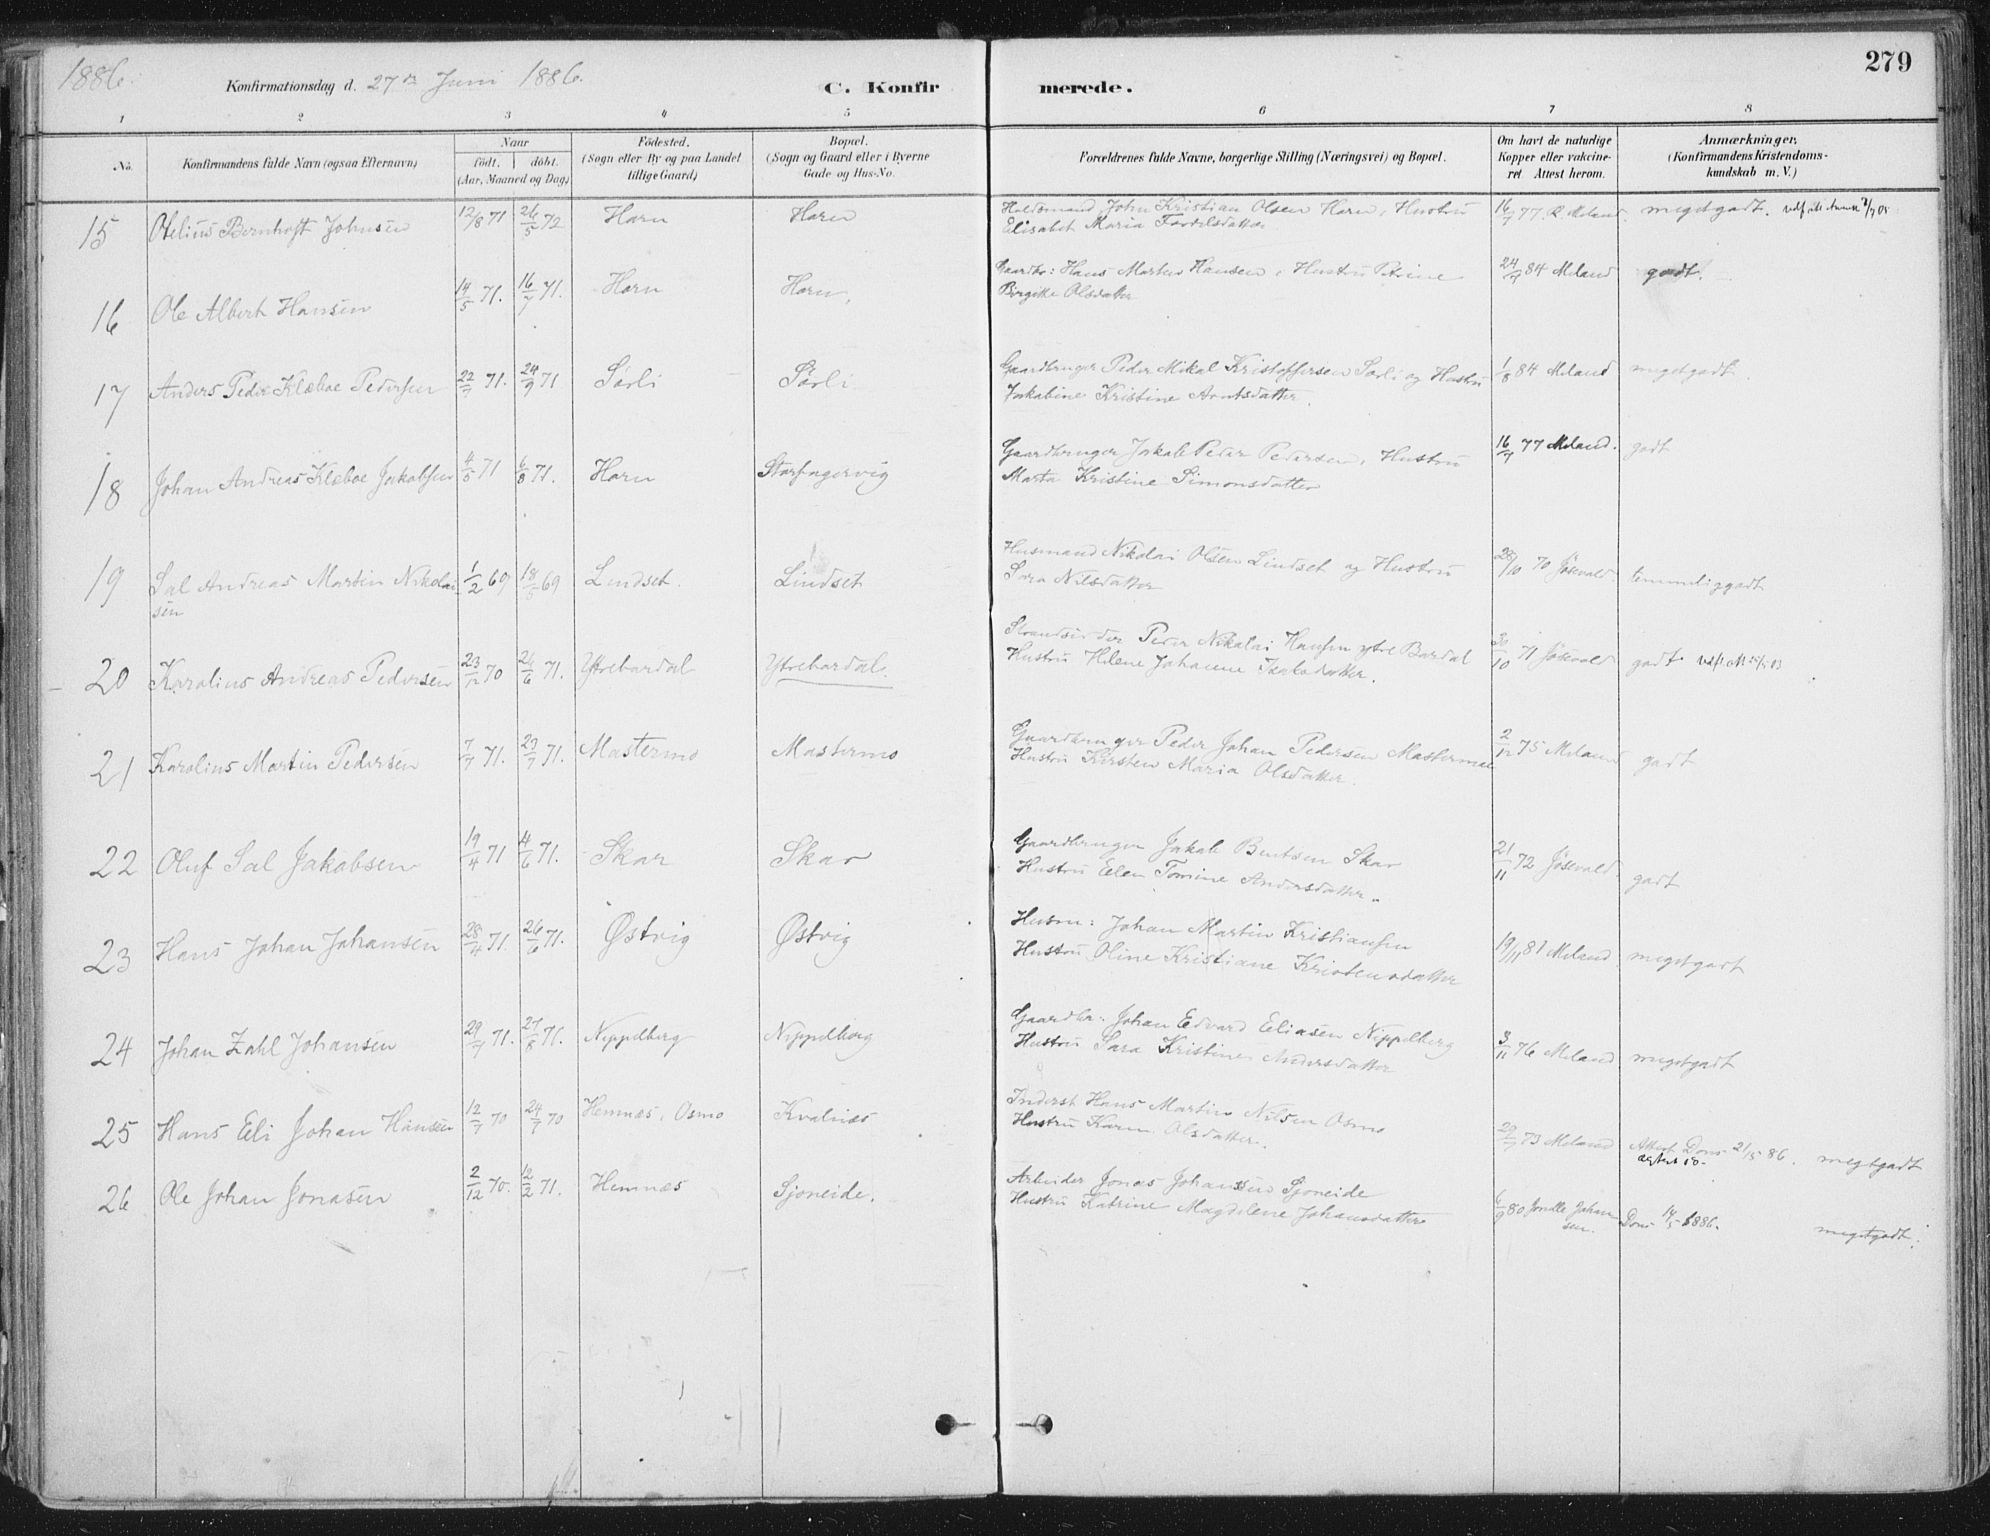 1886.
Konfirmationsdag d. 27de Juni 1886.
C. Konfirmerede.
279
1 2 3 4 5 6 7 8
No.
Konfirmandens fulde Navn (ogsaa Efternavn)
Naar
født. døbt.
(Aar, Maaned og Dag)
Fødested.
(Sogn eller By og paa Landet
tillige Gaard)
Bopæl.
(Sogn og Gaard eller i Byerne
Gade og Hus-No.
Forældrenes fulde Navne, borgerlige Stilling (Næringsvei) og Bopæl.
Om havt de naturlige
Kopper eller vakcine-
ret. Attest herom.
Anmærkninger.
(Konfirmandens Kristendoms-
kundskab m. V.)
15 Otelius Bernhoft Johnsen 12/8 71 26/5 72 Horn Horn John Kristian Olsen Horn, Hustru 16/7 77 Meland. megetgodt.
Elisabet Maria
16 Ole Albert Hansen 14/5 71. 16/7 71. Horn Horn, Gaardbr: Hans Martin Hansen, Hustru Petrine 24/9 84 Meland godt.
Birgitte Olsdatter
17 Anders Peder Klæboe Pedersen 22/7 71. 24/9 71 Sørli Sørli Gaardbruger Peder Mikal Kristoffersen Sørli og Hustru 1/8 84 Meland megetgodt.
Jakobine Kristine Arntsdatter.
18 Johan Andreas Klæboe Jakobsen 4/5 71 6/8 71. Horn Gaardbruger Jakob Peter Pedersen, Hustru 16/7 77 Meland. godt
Marta Kristine Simonsdatter
19 Sal Andreas Martin Nikolai 1/2 69 18/5 69 Lindset. Lindset Husmand Nikolai Olsen Lindset og Hustru 28/10 70 Jösevold temmeliggodt
sen
Sara Nilsdatter
20 Karolius Andreas Pedersen 23/12 70 26/6 71. Ytrebardal Ytrebardal. Strandsidder Peder Nikolai Hansen ytre Bardal 30/10 71 Jösevold godt
Hustru Helene Johanne
21 Karolius Martin Pedersen 7/7 71. 23/7 71. Mastermo Mastermo Gaardbruger Peder Johan Pedersen Mastermo 2/12 75 Meland godt
Hustru Kirsten Maria Olsdatter.
22 Oluf Sal Jakobsen 19/4 71 4/6 71. Skar Skar Gaardbruger Jakob Bentsen Skar 21/11 72 Jösevold godt
Hustru Elen Tomine Andersdatter.
23 Hans Johan Johansen 28/4 71. 26/6 71. Østvig Østvig Husm: Johan Martin Kristiansen 19/11 81 Meland megetgodt
Hustru Oline Kristiane Kristensdatter
24 Johan Zahl Johansen 29/7 71. 27/8 71. Nippelberg Nippelberg Gaardbr: Johan Edvard Eliasen Nippelberg 3/11 76 Meland megetgodt
Hustru Sara Kristine Andersdatter
25 Hans Eli Johan Hansen 12/7 70 24/7 70 Hemnæs, Osmo Kvalnæs Inderst Hans Martin Nilsen Osmo 29/7 73 Meland Attest Døns 21/5 86. megetgodt
Hustru Karen Olsdatter.
26 Ole Johan Jonasen 2/12 70. 12/2 71. Hemnæs Sjoneide. Arbeider Jonas Johanssen Sjoneide 6/9 80 Johan
sen. Døns 14/5 1886. megetgodt.
Hustru Katrine Magdelene Johansdatter